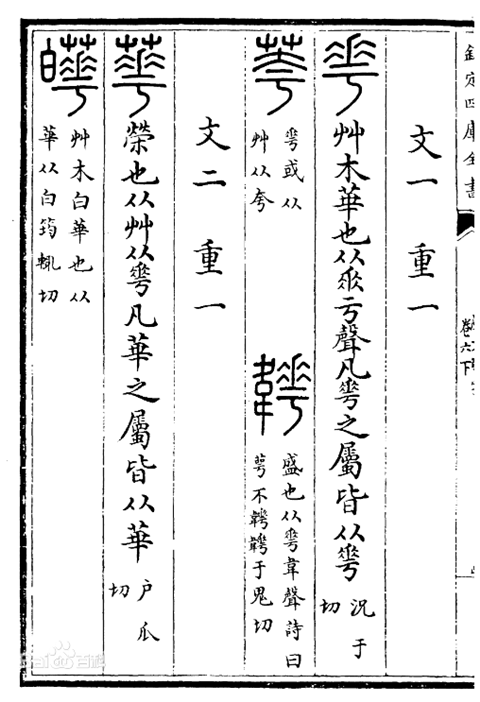 欽定四庫全書
卷六下
文一 重一
𠌶 艸木華也从𠂹亏聲凡𠌶之屬皆从𠌶 況于切
荂 𠌶或从艸从夸
𩏒 盛也从𠌶韋聲詩曰萼不𩏒𩏒于鬼切
文二 重一
華 榮也从艸从𠌶凡華之屬皆从華 戶瓜切
皣 艸木白華也从華从白筠輒切
Bai 百科